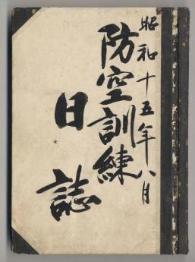 昭和十五年八月
防空訓練
日誌